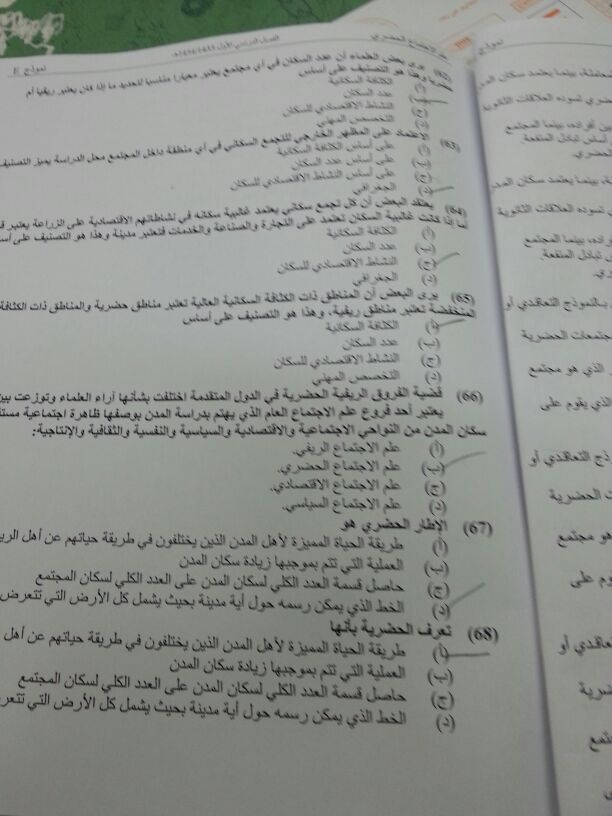 الاجتماع الحضري
الفصل الدراسي الأول 1434/1433هـ
نموذج E
(62) يرى بعض العلماء أن عدد السكان في أي مجتمع يعتبر معيارا مناسبا لتحديد ما إذا كان يعتبر ريفيا أم
حضريا وهذا هو التصنيف على أساس
(أ) الكثافة السكانية
(ب) عدد السكان
(ج) النشاط الاقتصادي للسكان
(د) التخصص المهني
(63) الاعتماد على المظهر الخارجي للتجمع السكاني في أي منطقة داخل المجتمع محل الدراسة يميز التصنيف
(أ) على أساس الكثافة السكانية
(ب) على أساس عدد السكان
(ج) على أساس النشاط الاقتصادي للسكان
(د) الجغرافي
(64) يعتقد البعض أن كل تجمع سكاني يعتمد غالبية سكانه في نشاطاتهم الاقتصادية على الزراعة يعتبر
أما إذا كانت غالبية السكان تعتمد على التجارة والصناعة والخدمات فتعتبر مدينة وهذا هو التصنيف على
(أ) الكثافة السكانية
(ب) عدد السكان
(ج) النشاط الاقتصادي للسكان
(د) الجغرافي
(65) يرى البعض أن المناطق ذات الكثافة السكانية العالية تعتبر مناطق حضرية والمناطق ذات الكثافة
المنخفضة تعتبر مناطق ريفية، وهذا هو التصنيف على أساس
(أ) الكثافة السكانية
(ب) عدد السكان
(ج) النشاط الاقتصادي للسكان
(د) التخصص المهني
(66) قضية الفروق الريفية الحضرية في الدول المتقدمة اختلفت بشأنها آراء العلماء وتوزعت بين
يعتبر أحد فروع علم الاجتماع العام الذي يهتم بدراسة المدن بوصفها ظاهرة اجتماعية
سكان المدن من النواحي الاجتماعية والاقتصادية والسياسية والنفسية والثقافية والإنتاجية:
(أ) علم الاجتماع الريفي.
(ب) علم الاجتماع الحضري.
(ج) علم الاجتماع الاقتصادي.
(د) علم الاجتماع السياسي.
(67) الإطار الحضري هو
(أ) طريقة الحياة المميزة لأهل المدن الذين يختلفون في طريقة حياتهم عن أهل
(ب) العملية التي تتم بموجبها زيادة سكان المدن
(ج) حاصل قسمة العدد الكلي لسكان المدن على العدد الكلي لسكان المجتمع
(د) الخط الذي يمكن رسمه حول أية مدينة بحيث يشمل كل الأرض التي تتعرض
(68) تعرف الحضرية بأنها
(أ) طريقة الحياة المميزة لأهل المدن الذين يختلفون في طريقة حياتهم عن أهل
(ب) العملية التي تتم بموجبها زيادة سكان المدن
(ج) حاصل قسمة العدد الكلي لسكان المدن على العدد الكلي لسكان المجتمع
(د) الخط الذي يمكن رسمه حول أية مدينة بحيث يشمل كل الأرض التي
نموذج
بينما يعتمد سكان
تسوده العلاقات الثانوية
أفراده، بينما المجتمع
أساس تبادل المنفعة
حضري.
بينما يعتمد سكان
تسوده العلاقات الثانوية
بينما المجتمع
تبادل المنفعة
بالنموذج التعاقدي أو
المجتمعات الحضرية
الذي هو مجتمع
الذي يقوم على
التعاقدي أو
الحضرية
هو مجتمع
يقوم على
التعاقدي أو